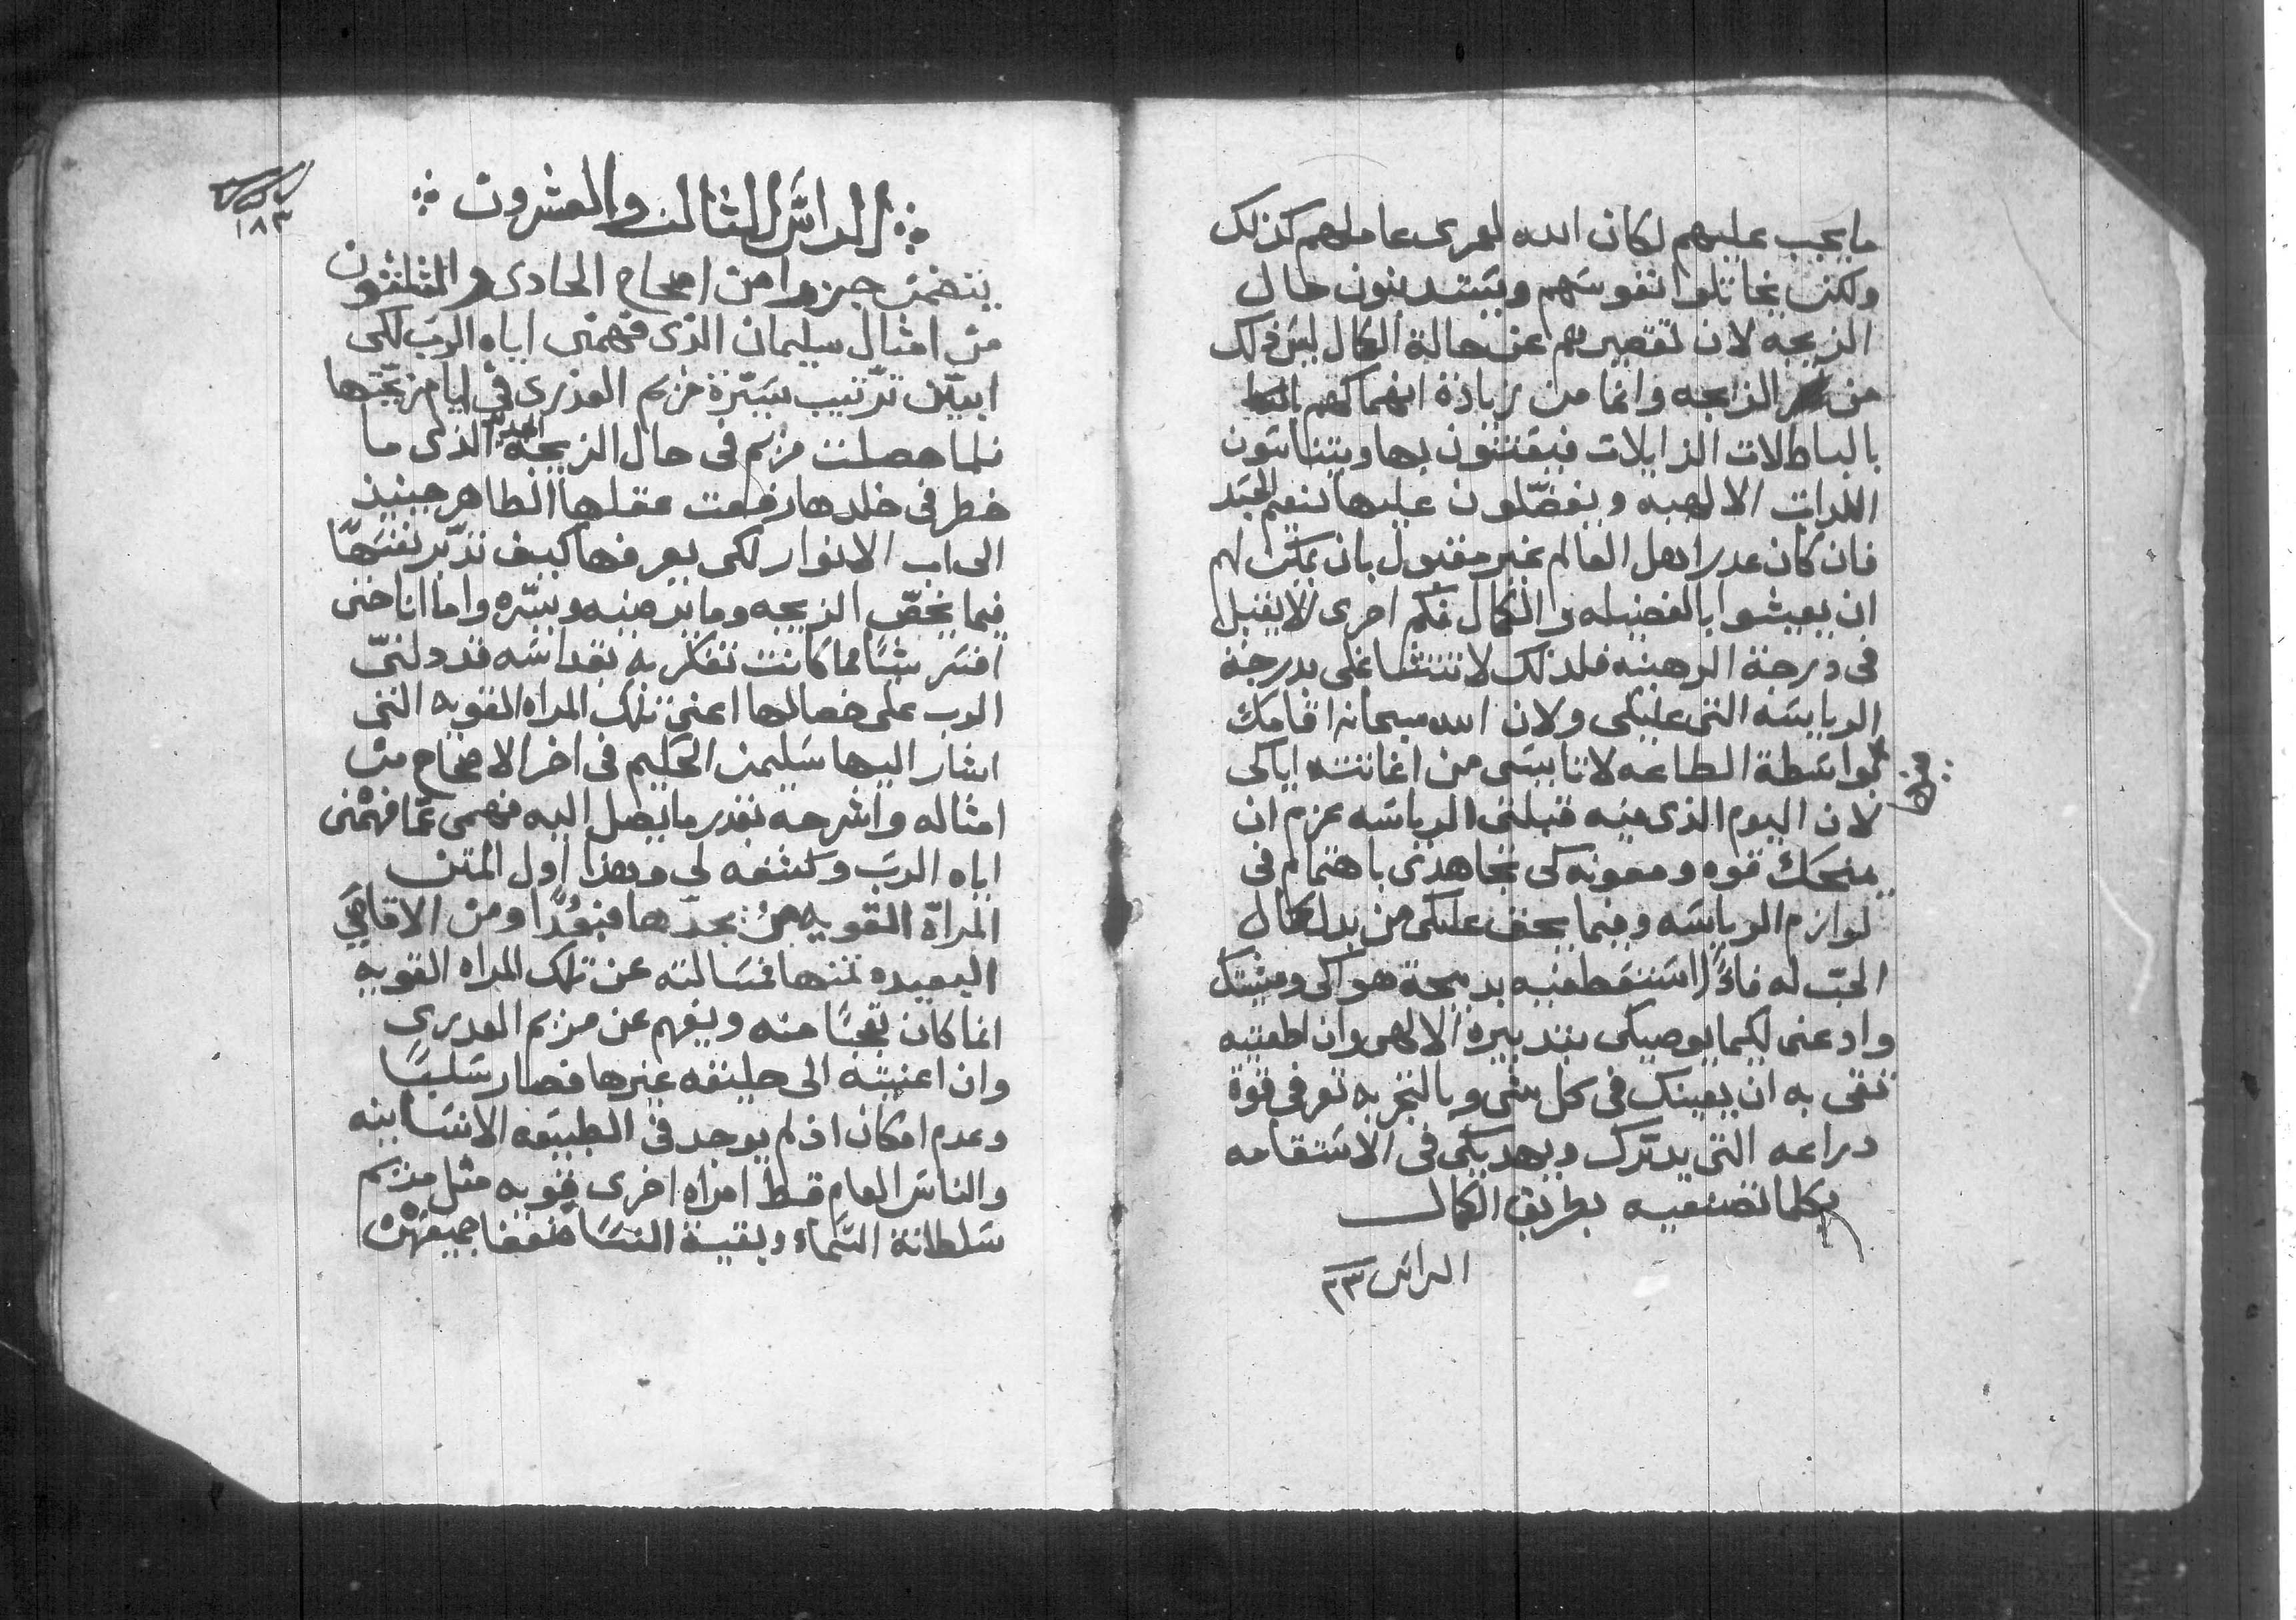 ما يجب عليهم لكان الله لعمرى عاملهم كذلك
ولكن يخاتلوا نفوسهم ويستدينون حال
الزيجه لان تقصيرهم عن حالة الكمال ليس ذلك
من الزيجه وانما من زيادة انهماكهم
بالباطلات الزايلات فيقتنون بها ويتناسون
اللدات الالهيه ويفضّلون عليها تنعم الجسَد
فان كان عدر اهل العالم غير مقبول بان يمكن لهم
ان يعيشوا بالفضيله والكمال فكم احرى لا يقبل
فى درجة الرهبنه فلذلك لا تتشاغلى بدرجة
الرياسَه التى عليكى ولان الله سبحانه اقامك
بواسَطة الطاعه لا تايسَى من اغاثته اياكى
لان اليوم الذى فيه قبلتى الرياسَه عزم ان
يمنحك قوه ومعونه كى تجاهدى باهتمام فى
لوازم الرياسَه وفيما يحق عليكى من بدل كمال
الحبّ له فاذًا استقطفيه بدبيحة هواكى ومشيتك
وادعنى لكيما يوصيكى بتدبيره الالهى وان اطعتيه
تقى به ان يعينك فى كل شى وبالتجربه تعرفى قوة
دراعه التى يدبّرك ويهديكى فى الاسَتقامه
بكلما تصنعيه بطريق الكمال
الراس ٢٣
١٨٣
الراسَ الثالث والعشرون
يتضمن جزوا من اصحاح الحادى والثلثون
من امثال سليمان الذى فهمنى اياه الربّ لكى
ابيّن ترتيب سَيّرة مريم العذرى فى ايام زيجّتها
فلما حصلت مريم فى حال الزيجه الذى ما
خطر فى خلدها رفعت عقلها الطاهر حينيذ
الى اب الانوار لكى يعرفها كيف تدّبر نفسَها
فيما يخصّ الزيجه وما يرضيه ويسّره واما انا حتى
افسَر شيًا مما كانت تفكر به بقداسَه قد دلنىّ
الرب على خصالها اعنى تلك المراه القويه التى
اشار اليها سَليمن الحَكيم فى اخر الاصحاح من
امثاله واشرحه بقدر ما يصل اليه فهمى عمّا فهّمنى
اياه الربّ وكشفه لى وهذا اول المتن
المراة القويه منْ يجدّها فبُعدًا ومن الاقاصَى
البعيده تمنها فمسَالته عن تلك المراه القويه
انما كان تعجبًا منه ويفهم عن مريم العدرى
وان اعنيته الى خليقه غيرها فصار سَلبًا
وعدم امكان اذ لم يوجد فى الطبيَعه الانسَانيه
والناسَ العام قط امراه اخرى قويه مثل مريم
سَلطانة السَّماء وبقية النسَا ضعفا جميعهْن